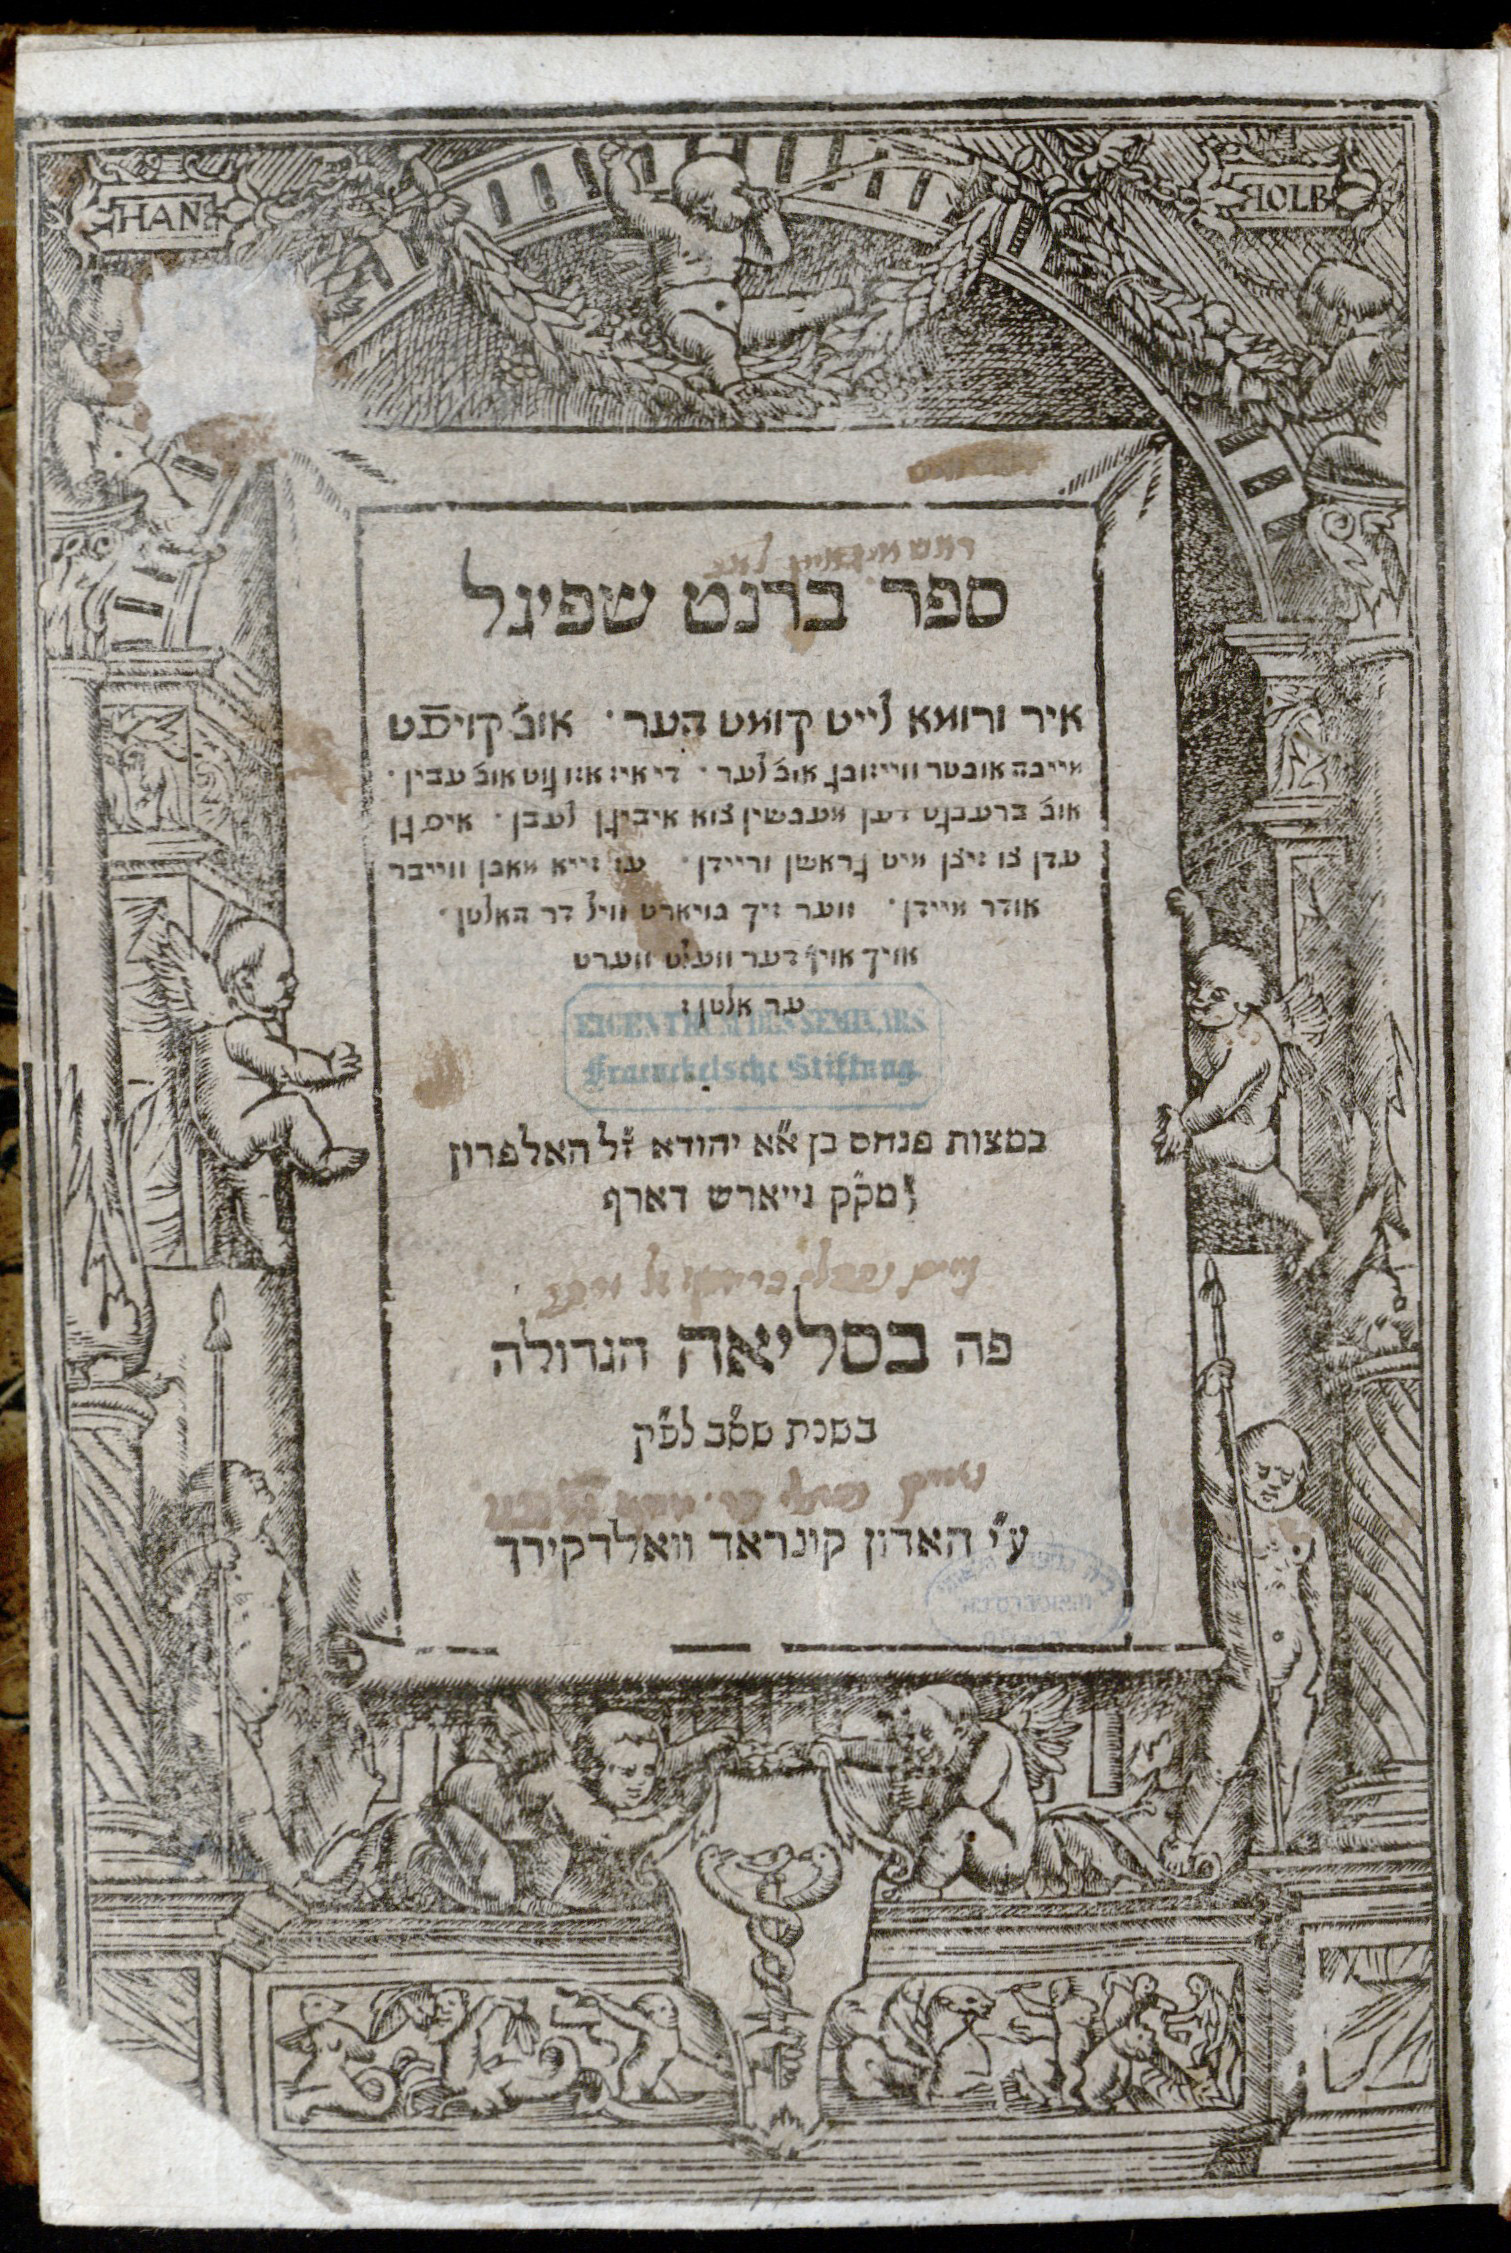 HAN
HOLB
ספר ברנט שפיגל
איר ורומא לייט קומט הער · אונ׳ קויפֿט
אונ׳ ברענגט דען מענשין צוא אייביגן לעבן · איס גן
עדן צו זיצן מיט גראשן וריידן · עז זייא מאנן ווייבר
אודר מיידן · ווער זיך גוויארט וויל דר האלטן ·
אויך אויף דער וועלט ווערט
ער אלטן :
EIGENTHUM DES SEMINARS
Fraenckelsche Stiftung
במצות פנחס בן א״א יהודא ז״ל האלפרון
מק״ק נייארש דארף
פה בסליאה הגדולה
בשנת שס״ב לפ״ק
ע״י האדון קונראד וואלדקירך